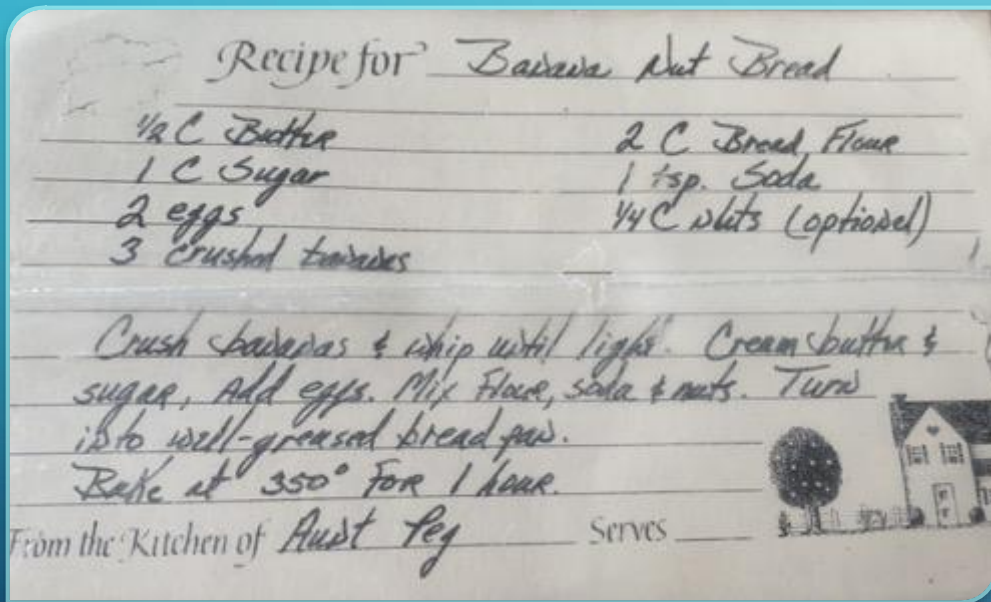 Recipe for Banana Nut Bread
1/2 C Butter
1 C Sugar
2 eggs
3 crushed bananas
2 C Bread Flour
1 tsp. Soda
1/4 C Nuts (optional)
Crush bananas & whip until light. Cream butter &
sugar, Add eggs. Mix Flour, soda & nuts. Turn
into well-greased bread pan.
Bake at 350° For 1 hour.
From the Kitchen of Aunt Peg Serves